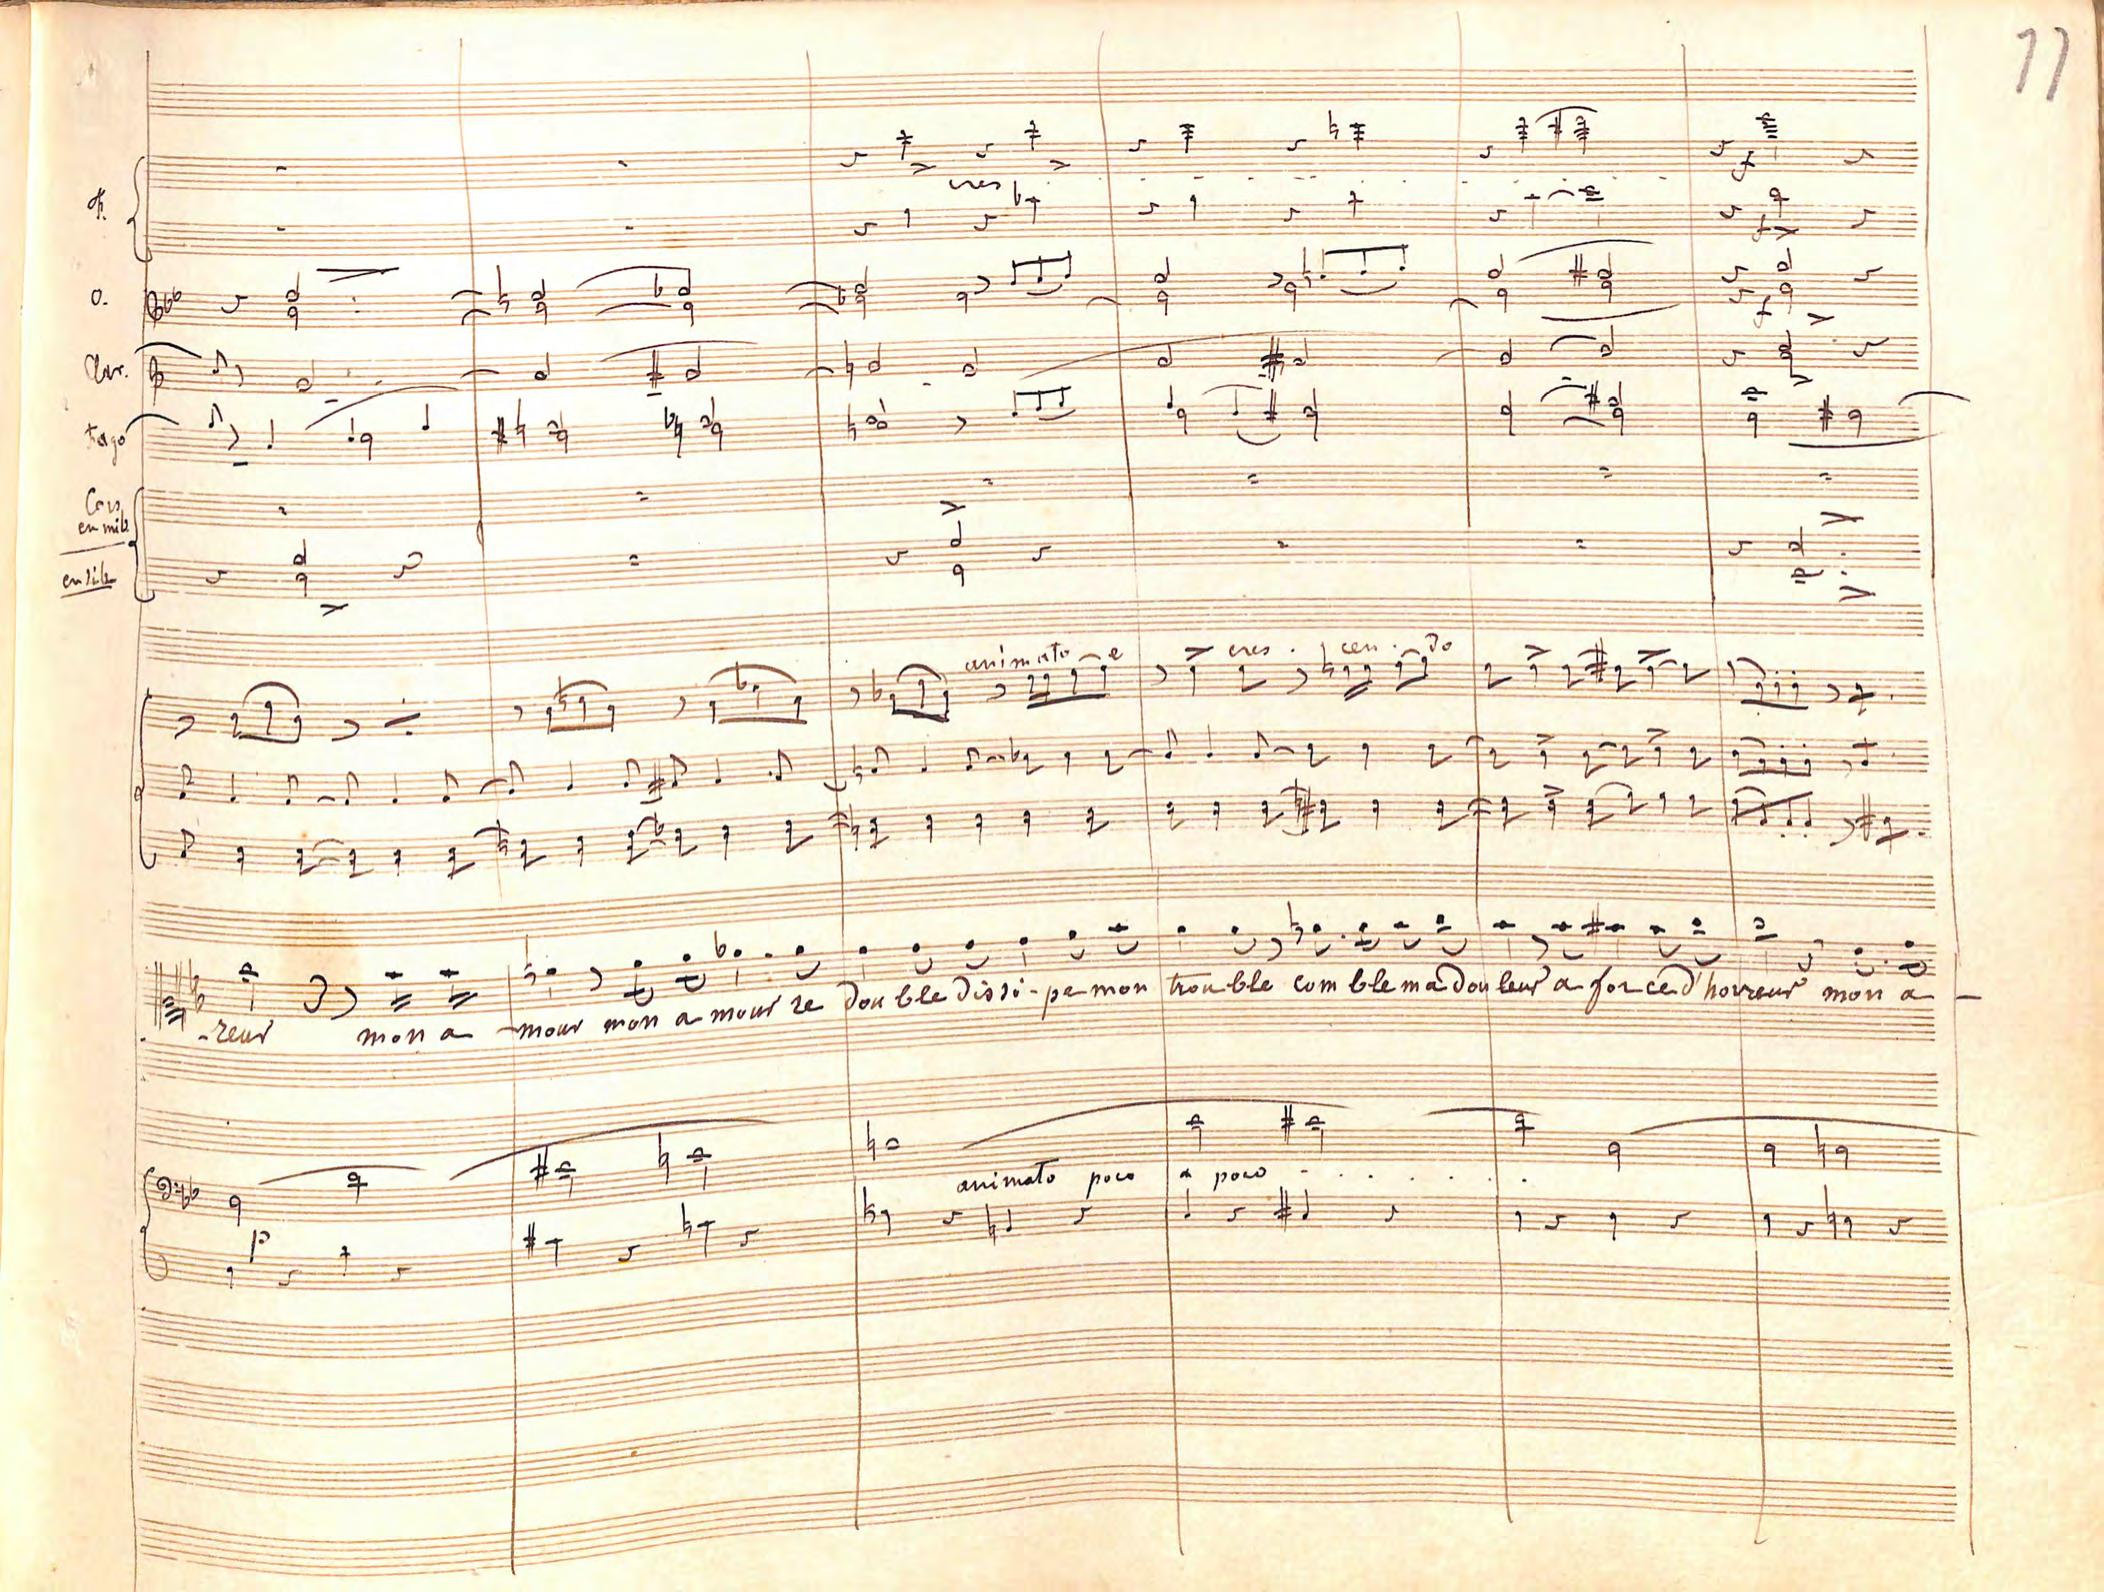 11
cres
f
fl.
f
O.
f
Clar.
Fago
Cors
en mib
en sib
animato e cres. cen. do
-reur mon a -mour mon a mour re double dissi-pe mon trouble comble ma douleur a force d'horreur mon a -
animato poco a poco
p